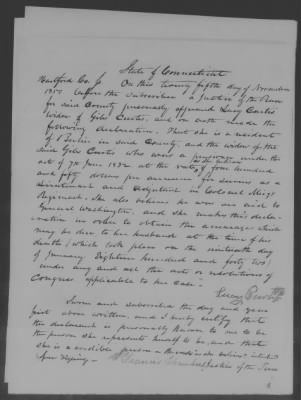 State of Connecticut
Hartford Co. On this twenty fifth day of November
1850 before the Subscriber a Justice of the Peace
for said County personally appeared Lucy Curtis
widow of Giles Curtis, and on oath made the
following declaration. That she is a resident
of Berlin in said County, and the widow of the
said Giles Curtis who was a pensioner under the
act of 7th June 1832 at the rate of four hundred
and fifty dollars per annum for services as a
Lieutenant and Adjutant in Colonel Meigs
Regiment. She also believes he was an aid to
General Washington, and she makes this decla-
ration in order to obtain the arrearage which
may be due to her husband at the time of his
death (which took place on the nineteenth day
of January Eighteen hundred and forty two)
under any and all the acts or resolutions of
Congress applicable to her case.
Lucy
Sworn and subscribed the day and year
just above written, and I hereby certify that
the declarant is personally known to me to be
the person she represents herself to be, and that
she is a credible person
Justice of the Peace